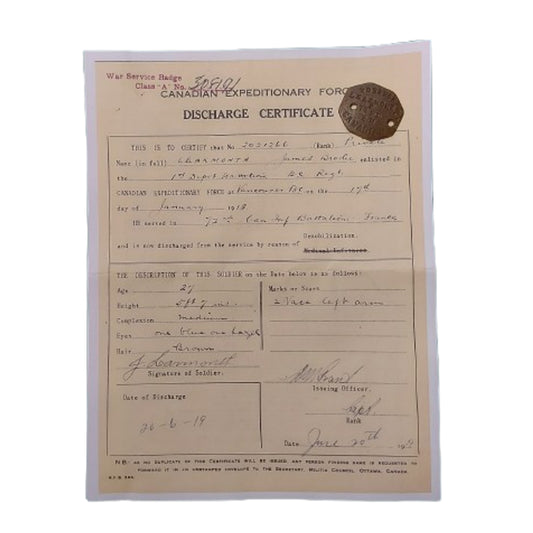 War Service Badge
Class "A" No. 308191
CANADIAN EXPEDITIONARY FORCE
DISCHARGE CERTIFICATE
THIS IS TO CERTIFY that No (Rank) Private
Name (in full) LEARMONTH James Brodie enlisted in
the 1st Depot Battalion B.C. Regt.
CANADIAN EXPEDITIONARY FORCE at Vancouver BC on the 17th
day of January 1918
HE served in 72nd Can Inf Battalion France
Demobilization.
and is now discharged from the service by reason of Medical Unfitness.
THE DESCRIPTION OF THIS SOLDIER on the Date below is as follows:
Age 27
Height 5ft 7 ins.
Complexion medium
Eyes one blue one hazel
Hair Brown
Signature of Soldier.
Marks or Scars
2 Vacc left arm
Issuing Officer.
Capt.
Rank
Date of Discharge
20-6-19
Date June 20th 19
NB: AS NO DUPLICATE OF THIS CERTIFICATE WILL BE ISSUED, ANY PERSON FINDING SAME IS REQUESTED TO
FORWARD IT IN AN UNSTAMPED ENVELOPE TO THE SECRETARY, MILITIA COUNCIL, OTTAWA, CANADA.